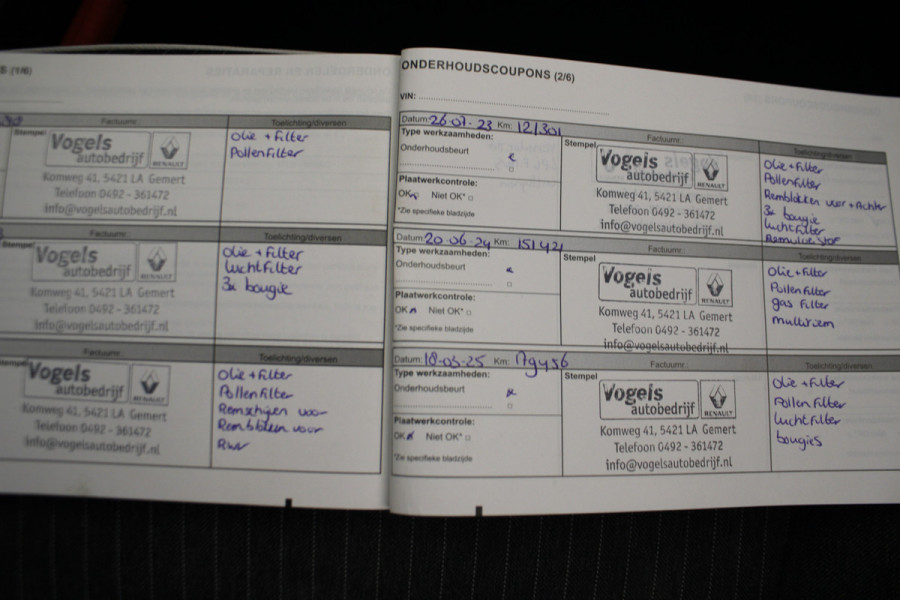 (1/6)
Stempel
Factuurnr.:
Toelichting/diversen
Vogels
autobedrijf
RENAULT
Komweg 41, 5421 LA Gemert
Telefoon 0492 - 361472
info@vogelsautobedrijf.nl
Olie + Filter
Pollenfilter
Stempel
Factuurnr.:
Toelichting/diversen
Vogels
autobedrijf
RENAULT
Komweg 41, 5421 LA Gemert
Telefoon 0492 - 361472
info@vogelsautobedrijf.nl
Olie + Filter
Luchtfilter
3x bougie
Stempel
Factuurnr.:
Toelichting/diversen
Vogels
autobedrijf
RENAULT
Komweg 41, 5421 LA Gemert
Telefoon 0492 - 361472
info@vogelsautobedrijf.nl
Olie + Filter
Pollenfilter
Remschijven voor
Remblokken voor
ONDERHOUDSCOUPONS (2/6)
VIN:
Datum: 26-07-23 Km: 121301
Type werkzaamheden:
Onderhoudsbeurt
Plaatwerkcontrole:
OK Niet OK*
*Zie specifieke bladzijde
Stempel
Factuurnr.:
Toelichting/diversen
Vogels
autobedrijf
RENAULT
Komweg 41, 5421 LA Gemert
Telefoon 0492 - 361472
info@vogelsautobedrijf.nl
Olie + Filter
Pollenfilter
Remblokken voor + Achter
3x bougie
Luchtfilter
Remvloeistof
Datum: 20-06-24 Km: 151421
Type werkzaamheden:
Onderhoudsbeurt
Plaatwerkcontrole:
OK Niet OK*
*Zie specifieke bladzijde
Stempel
Factuurnr.:
Toelichting/diversen
Vogels
autobedrijf
RENAULT
Komweg 41, 5421 LA Gemert
Telefoon 0492 - 361472
info@vogelsautobedrijf.nl
Olie + Filter
Pollenfilter
gas Filter
multiriem
Datum: Km:
Type werkzaamheden:
Onderhoudsbeurt
Plaatwerkcontrole:
OK Niet OK*
*Zie specifieke bladzijde
Stempel
Factuurnr.:
Toelichting/diversen
Vogels
autobedrijf
RENAULT
Komweg 41, 5421 LA Gemert
Telefoon 0492 - 361472
info@vogelsautobedrijf.nl
Olie + Filter
Pollen Filter
Luchtfilter
bougies